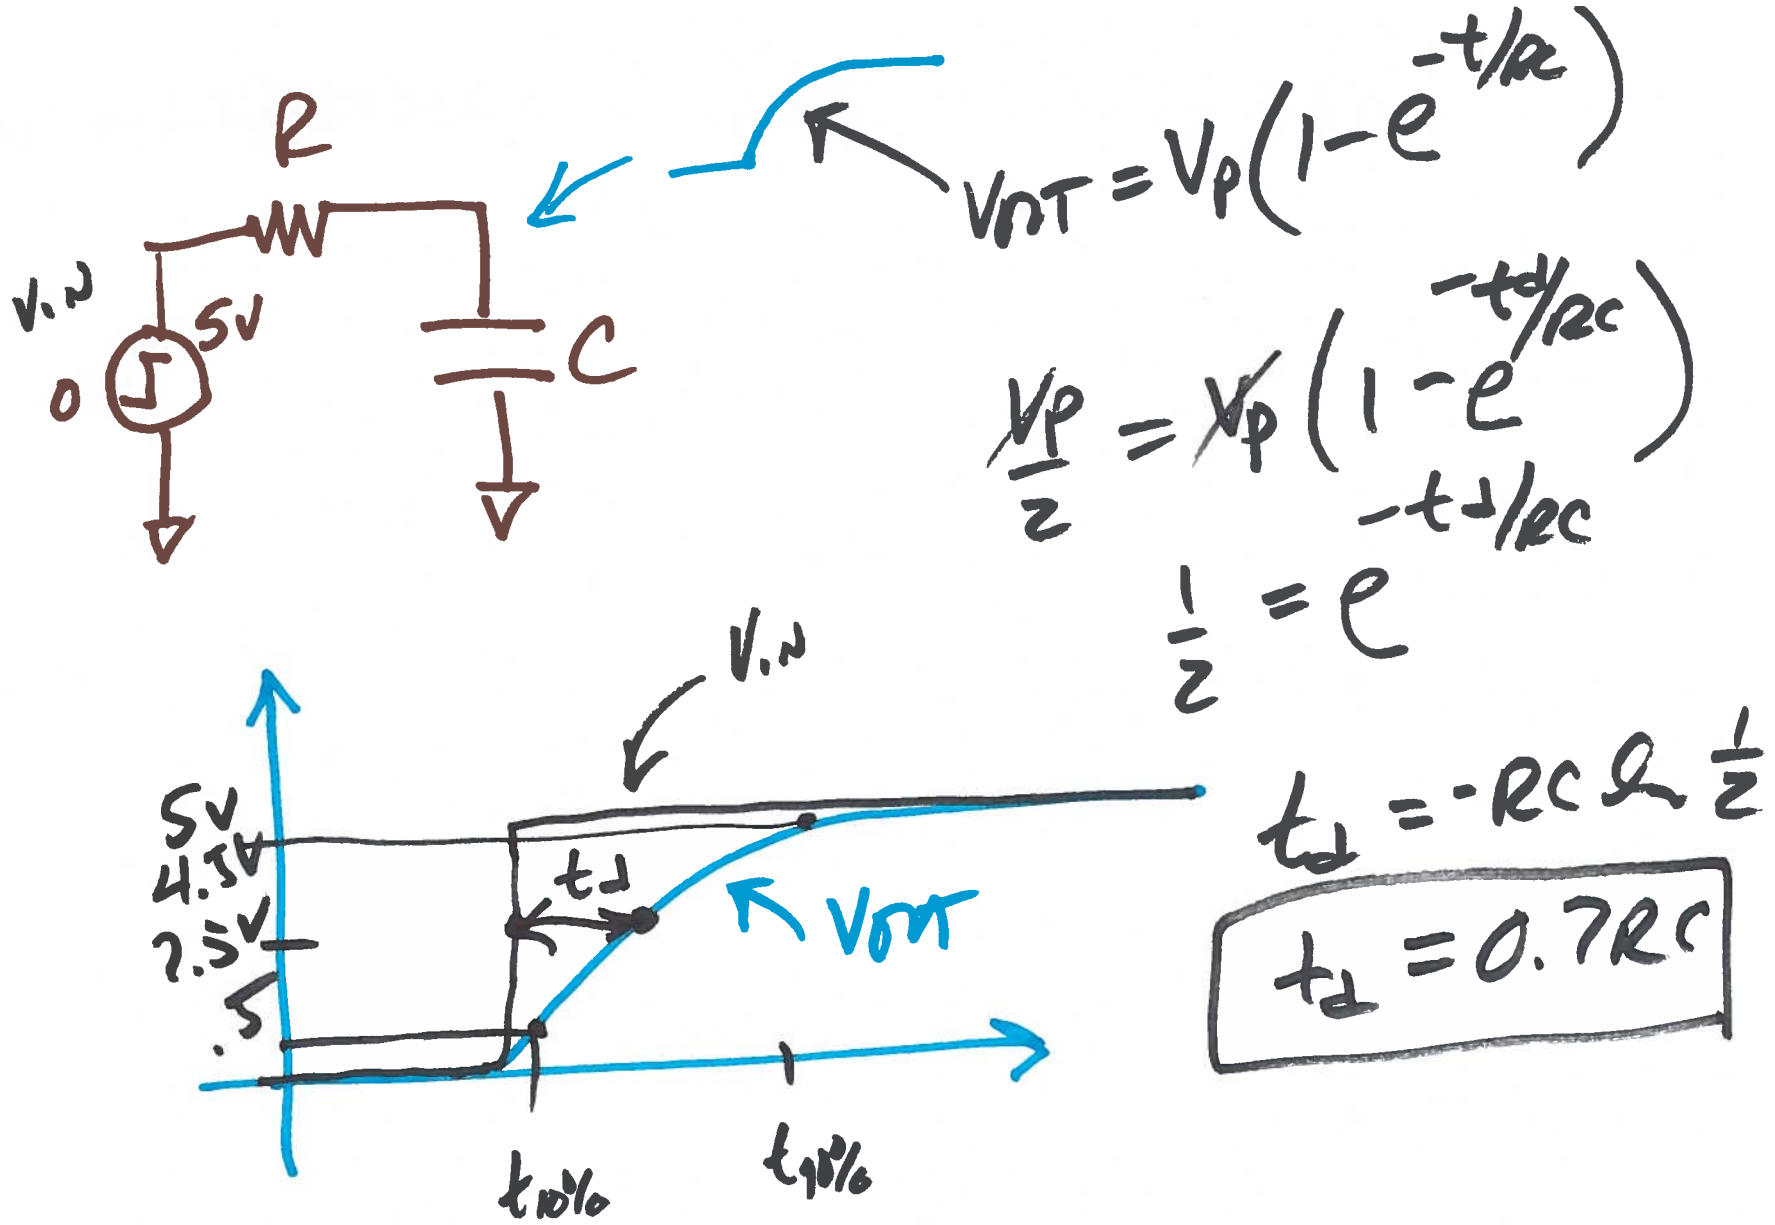 R
V_IN
5V
0
C
V_OUT = V_P(1 - e^{-t/RC})
V_P/2 = V_P(1 - e^{-t_d/RC})
1/2 = e^{-t_d/RC}
t_d = -RC ln 1/2
t_d = 0.7RC
V_IN
5V
4.5V
t_d
V_OUT
2.5V
.5
t_10%
t_90%